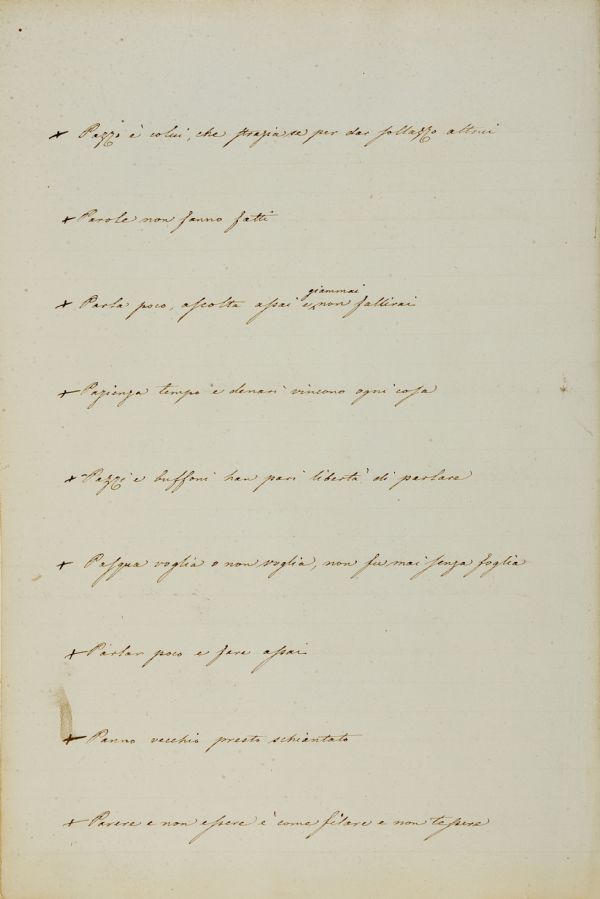 + Pazzo è colui, che strazia se per dar sollazzo altrui
+ Parole non fanno fatti
+ Parla poco, ascolta assai e giammai non fallirai
+ Pazienza tempo e denari vincono ogni cosa
+ Pazzi e buffoni han pari libertà di parlare
+ Pasqua voglia o non voglia, non fu mai senza foglia
+ Parlar poco e fare assai
+ Panno vecchio presto schiantato
+ Parere e non essere è come filare e non tessere